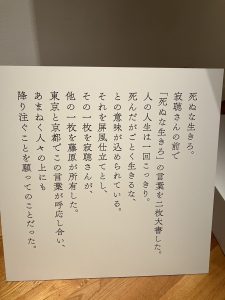 死ぬな生きろ。
寂聴さんの前で
「死ぬな生きろ」の言葉を二枚大書した。
人の人生は一回こっきり。
死んだがごとく生きるな、
との意味が込められている。
それを屏風仕立てとし、
その一枚を寂聴さんが、
他の一枚を藤原が所有した。
東京と京都でこの言葉が呼応し合い、
あまねく人々の上にも
降り注ぐことを願ってのことだった。